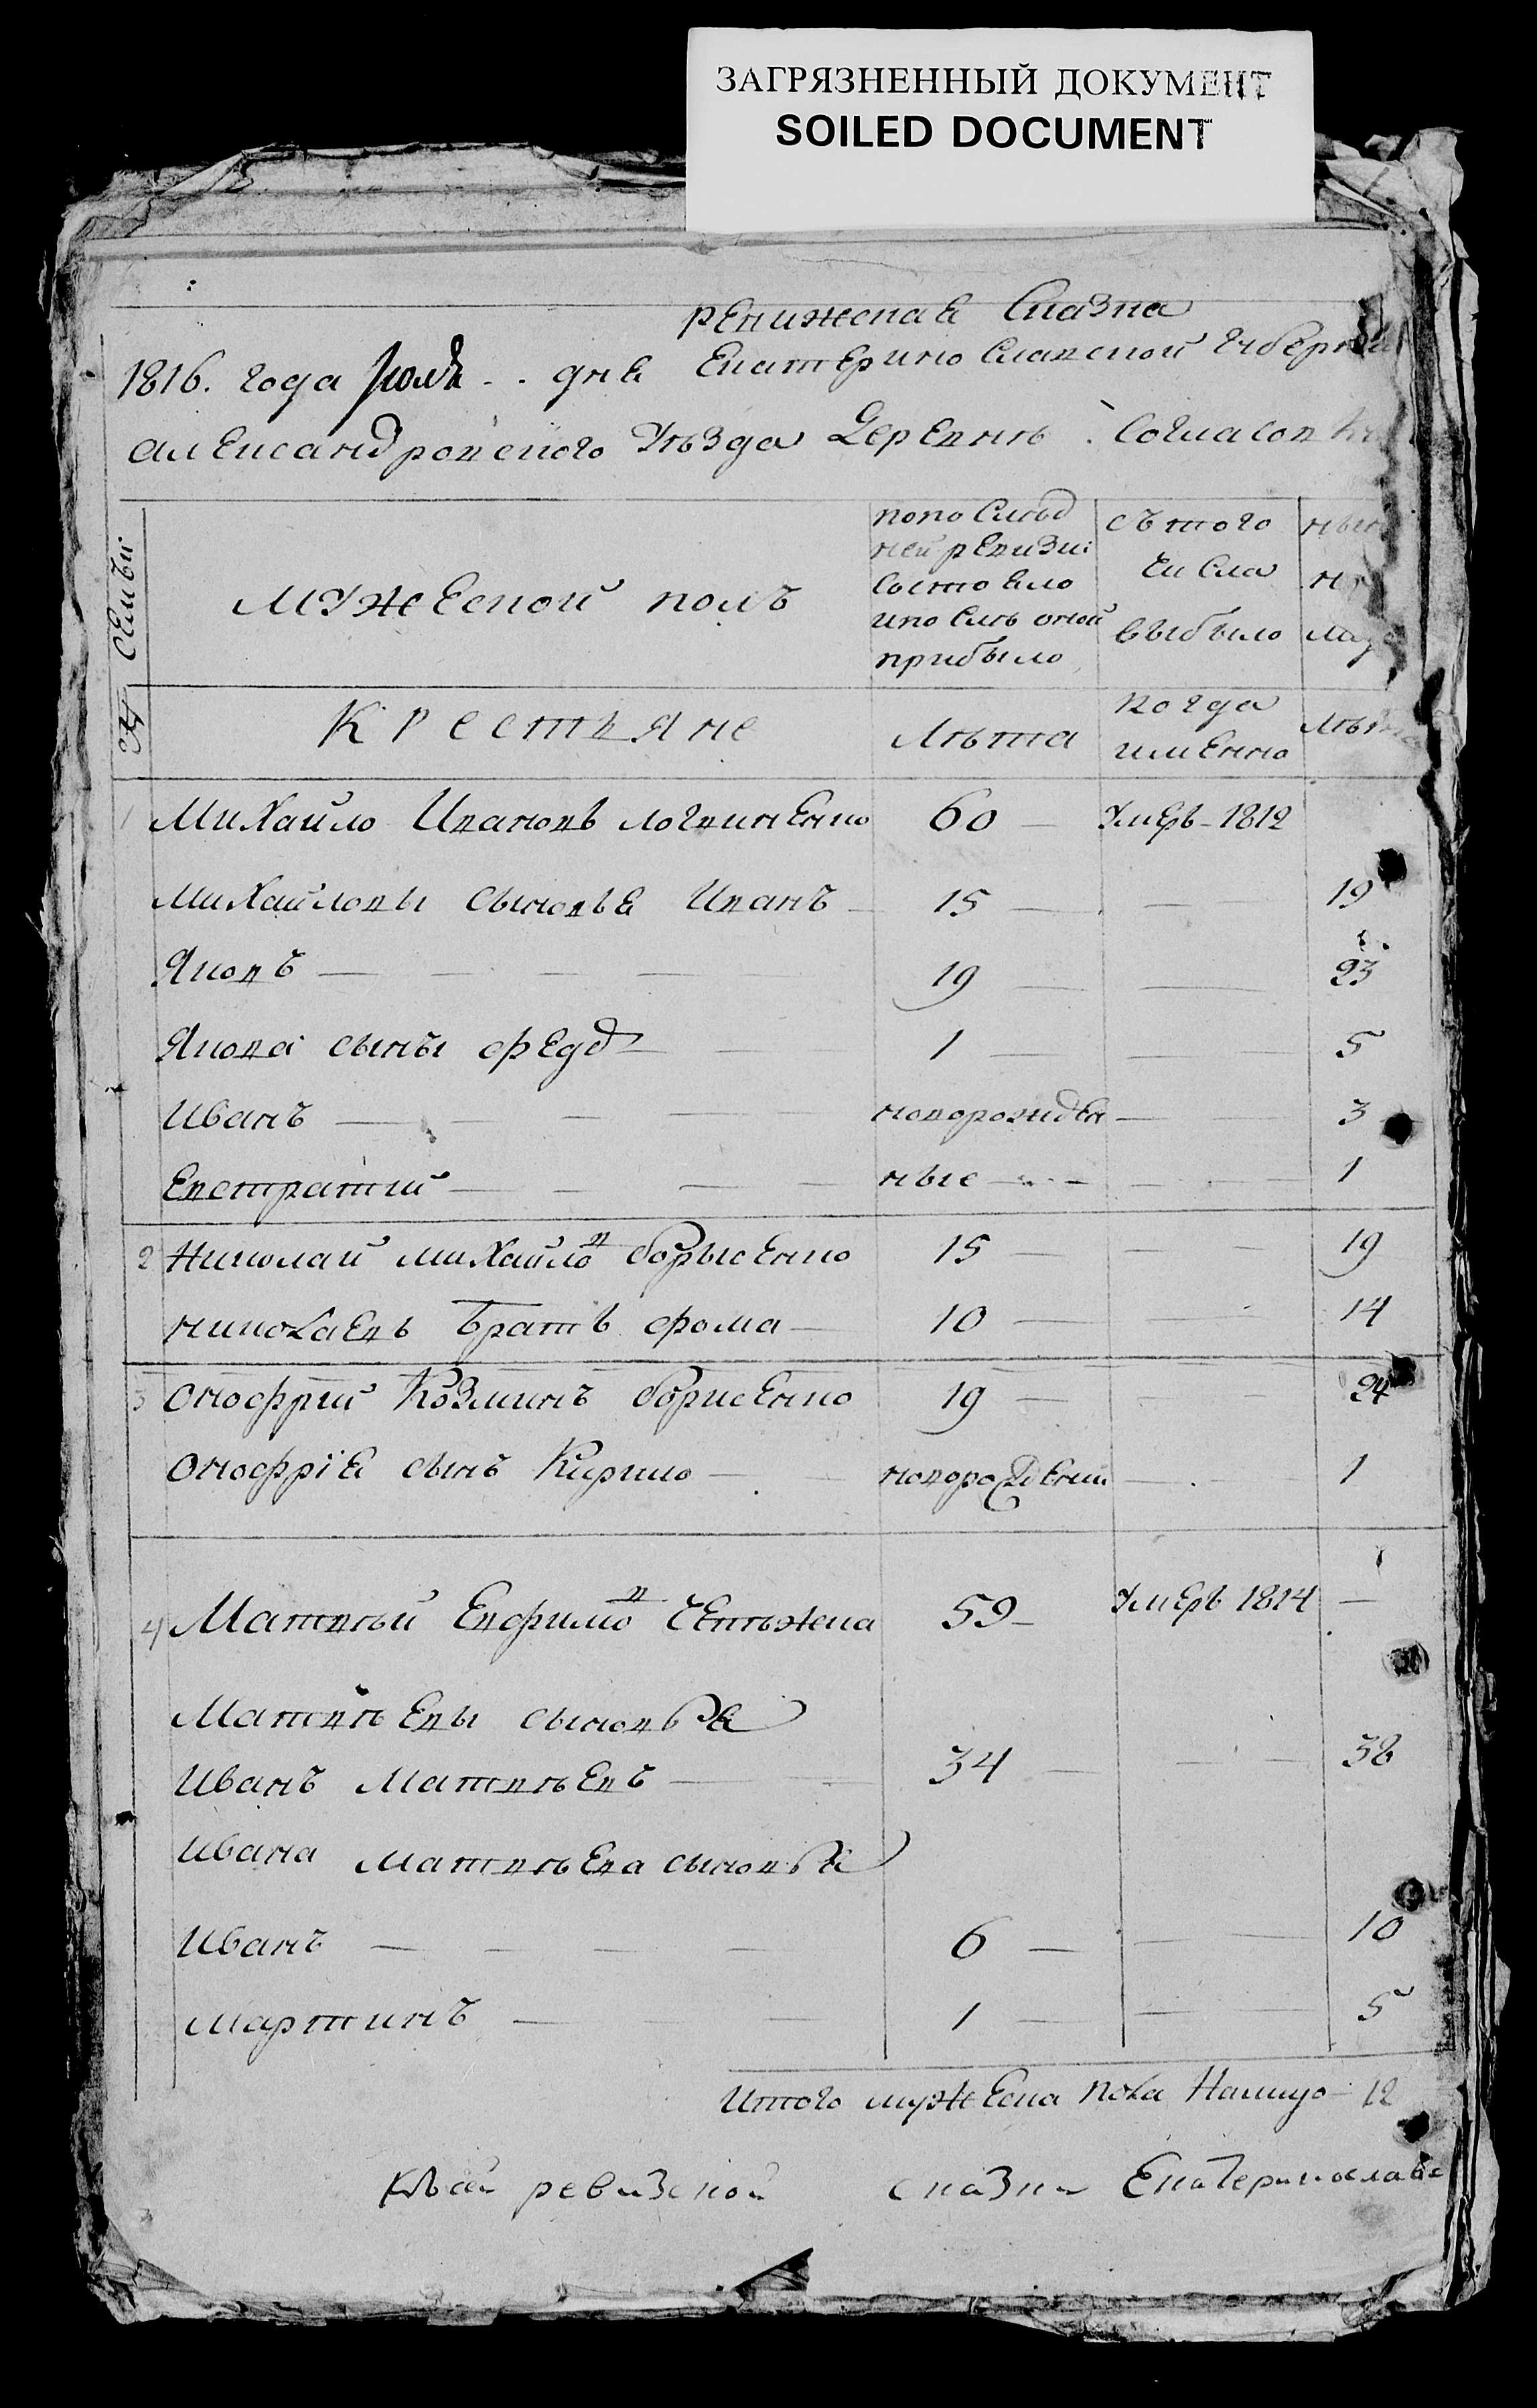 ЗАГРЯЗНЕННЫЙ ДОКУМЕНТ
SOILED DOCUMENT
ревижская Сказка
1816. года Июля .. дня Екатеринославской Губерни
александровского Уѣзда Деревнѣ Согласов
№ семьи
мужеской полъ
попослѣд ней ревизіи состояло ипослѣ оной прибыло
съ того числа выбыло
Крестьяне
Лѣта
когда именно
Лѣта
1 Михайло Ивановъ логвиненко 60 Умеръ 1812
Михайловы сыновья Иванъ 15 19
Яковъ 19 23
Якова сыны Федо 1 5
Иванъ новорожден 3
Евстратий ные 1
2 Николай Михайлов борысенко 15 19
николаевъ братъ фома 10 14
3 онофрий Козминъ борисенко 19 24
онофрія сынъ Кирило новорожденни 1
4 Матвѣй Евфимов Чепѣжека 59 Умеръ 1814
Матвѣевы сыновья
Иванъ Матвѣевъ 34 38
Ивана Матвѣева сыновья
Иванъ 6 10
Мартинъ 1 5
Итого мужеска пола Налицо 12
Ксей ревизской сказки Екатеринославс